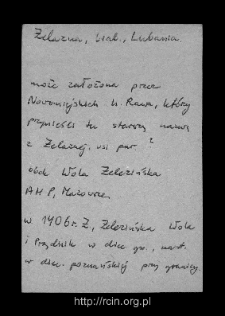 Żelazna, Lub., Lubania
może założona przez
Nowomiejskich h. Rawa, którzy
przynieśli tu starszy nazwę
z Żelaznej, wsi par. ?
obok Wola Żelezińska
AHP, Mazowsze
w 1406 r. Ż, Żelezińska Wola
i Prądnik w dice gr.,
w dice. poznańskiej przy granicy.
http://rcin.org.pl